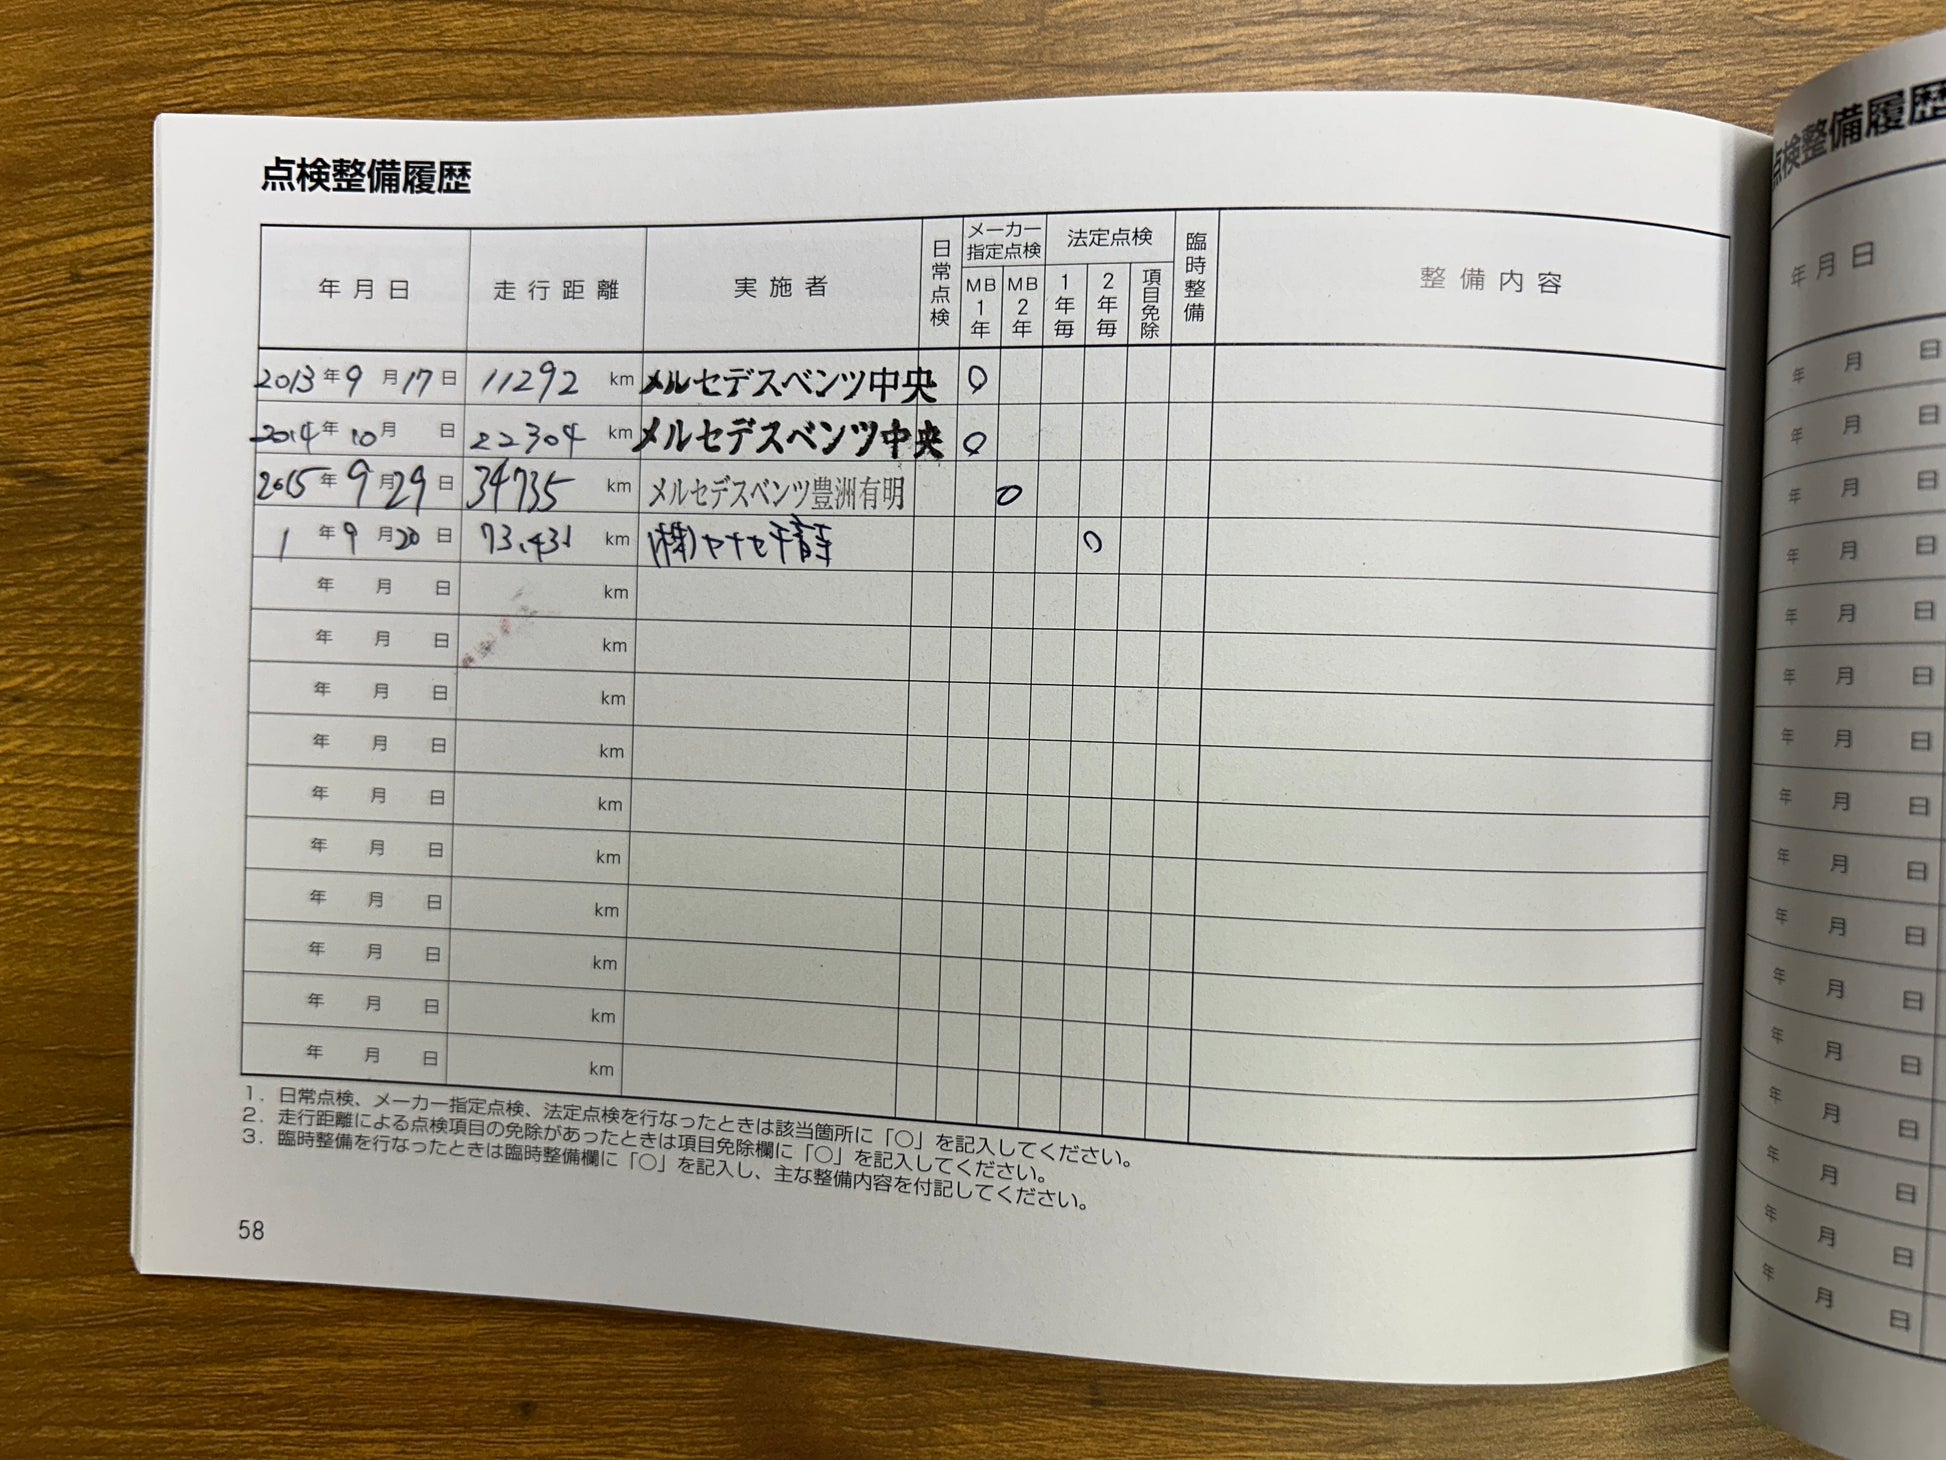 点検整備履歴
年月日 走行距離 実施者 日常点検 メーカー指定点検 MB1年 MB2年 法定点検 1年毎 2年毎 項目免除 臨時整備 整備内容
2013年9月17日 11292 km メルセデスベンツ中央 ○
2014年10月 日 22304 km メルセデスベンツ中央 ○
2015年9月29日 34735 km メルセデスベンツ豊洲有明 ○
1年9月20日 73,431 km (株)ヤナセ ○
年 月 日 km
年 月 日 km
年 月 日 km
年 月 日 km
年 月 日 km
年 月 日 km
年 月 日 km
年 月 日 km
年 月 日 km
年 月 日 km
1. 日常点検、メーカー指定点検、法定点検を行なったときは該当箇所に「○」を記入してください。
2. 走行距離による点検項目の免除があったときは項目免除欄に「○」を記入してください。
3. 臨時整備を行なったときは臨時整備欄に「○」を記入し、主な整備内容を付記してください。
58
点検整備履歴
年月日
年 月 日
年 月 日
年 月 日
年 月 日
年 月 日
年 月 日
年 月 日
年 月 日
年 月 日
年 月 日
年 月 日
年 月 日
年 月 日
年 月 日
年 月 日
年 月 日